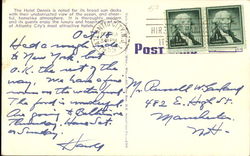 The Hotel Dennis is noted for its broad sun decks
with their unobstructed view of the ocean, and cheer-
ful, homelike atmosphere. It is thoroughly modern
and its guests enjoy the luxury and hospitality
at Atlantic City's most attractive hotel.
Oct. 18
Had a rough ride
to New York but
O.K. the rest of the
way. We have a fine
room on the water front.
The food is wonderful.
Are going to Baltimore
Thursday. Home Sat.
or Sunday.
Harold
POST
Mr. Russell W.
482 E. High St.
Manchester
N.H.